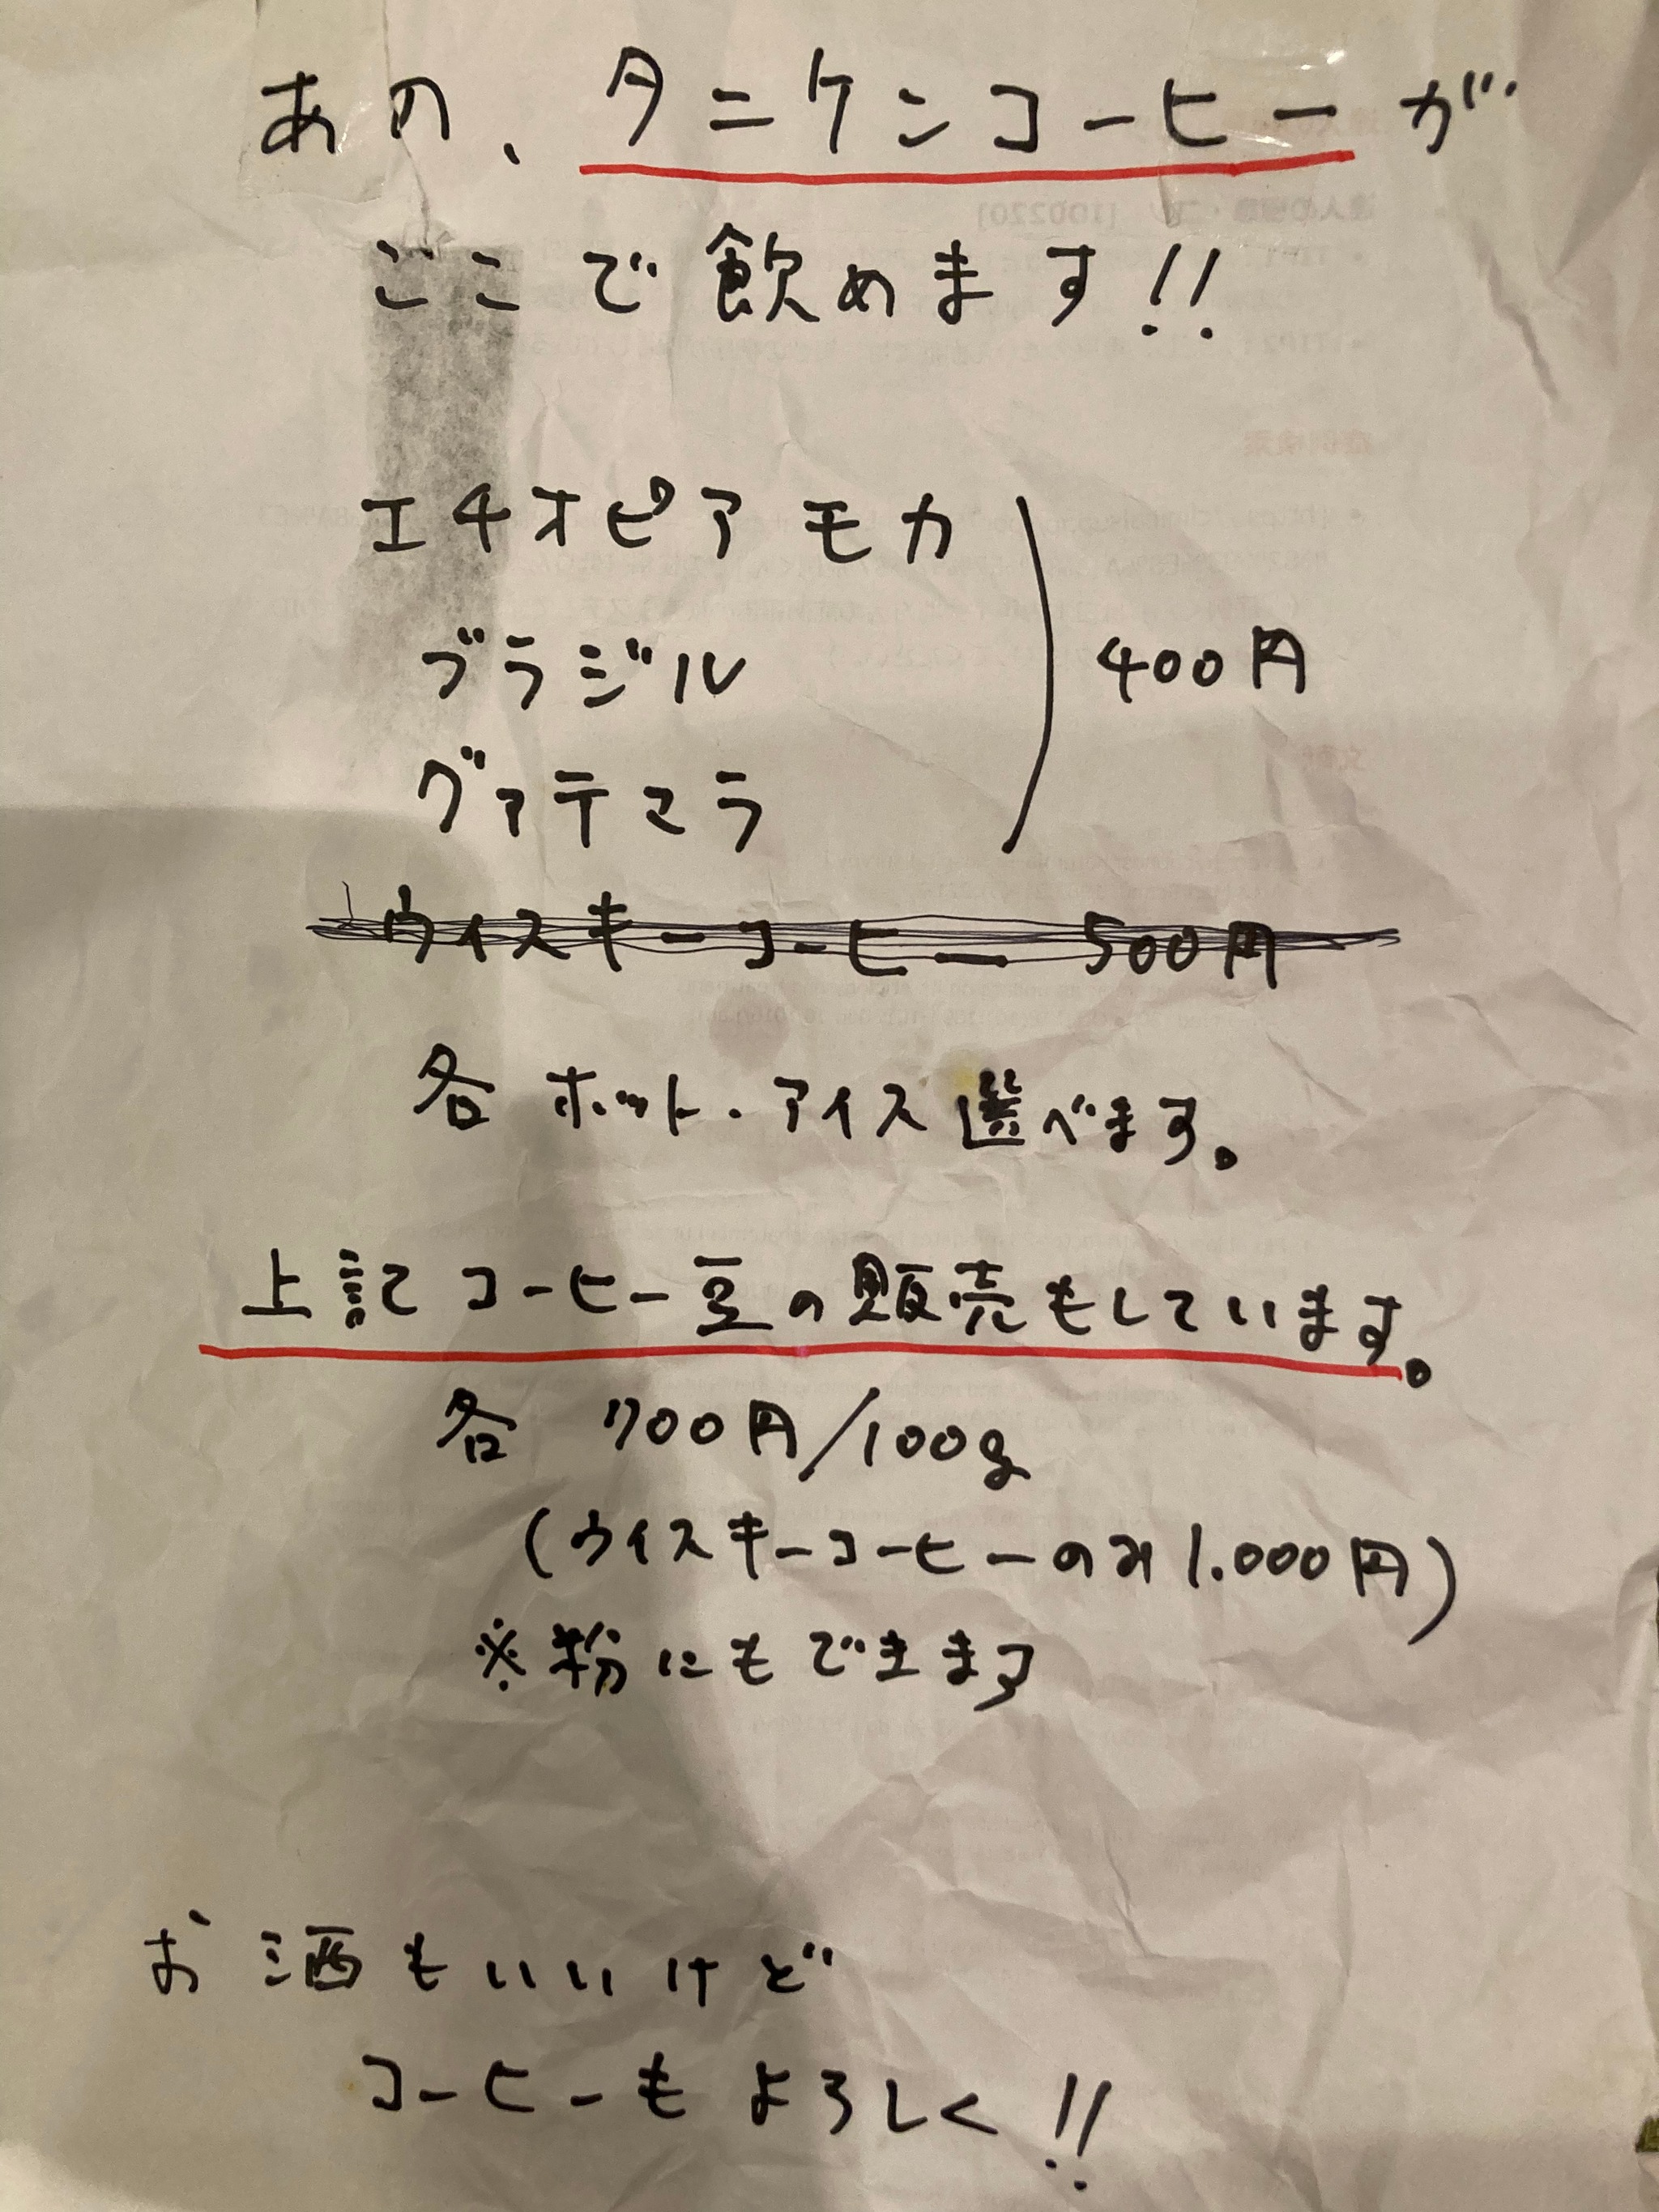 あの、タニケンコーヒーが
ここで飲めます!!
エチオピアモカ
ブラジル
グァテマラ
400円
ウィスキーコーヒー 500円
各 ホット・アイス選べます。
上記コーヒー豆の販売もしています。
各 700円/100g
(ウィスキーコーヒーのみ1.000円)
※粉にもできます
お酒もいいけど
コーヒーもよろしく!!